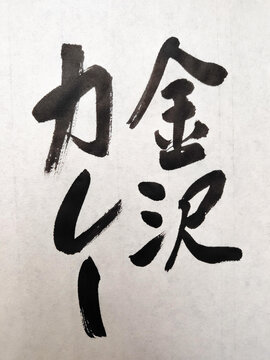 金沢
カレー